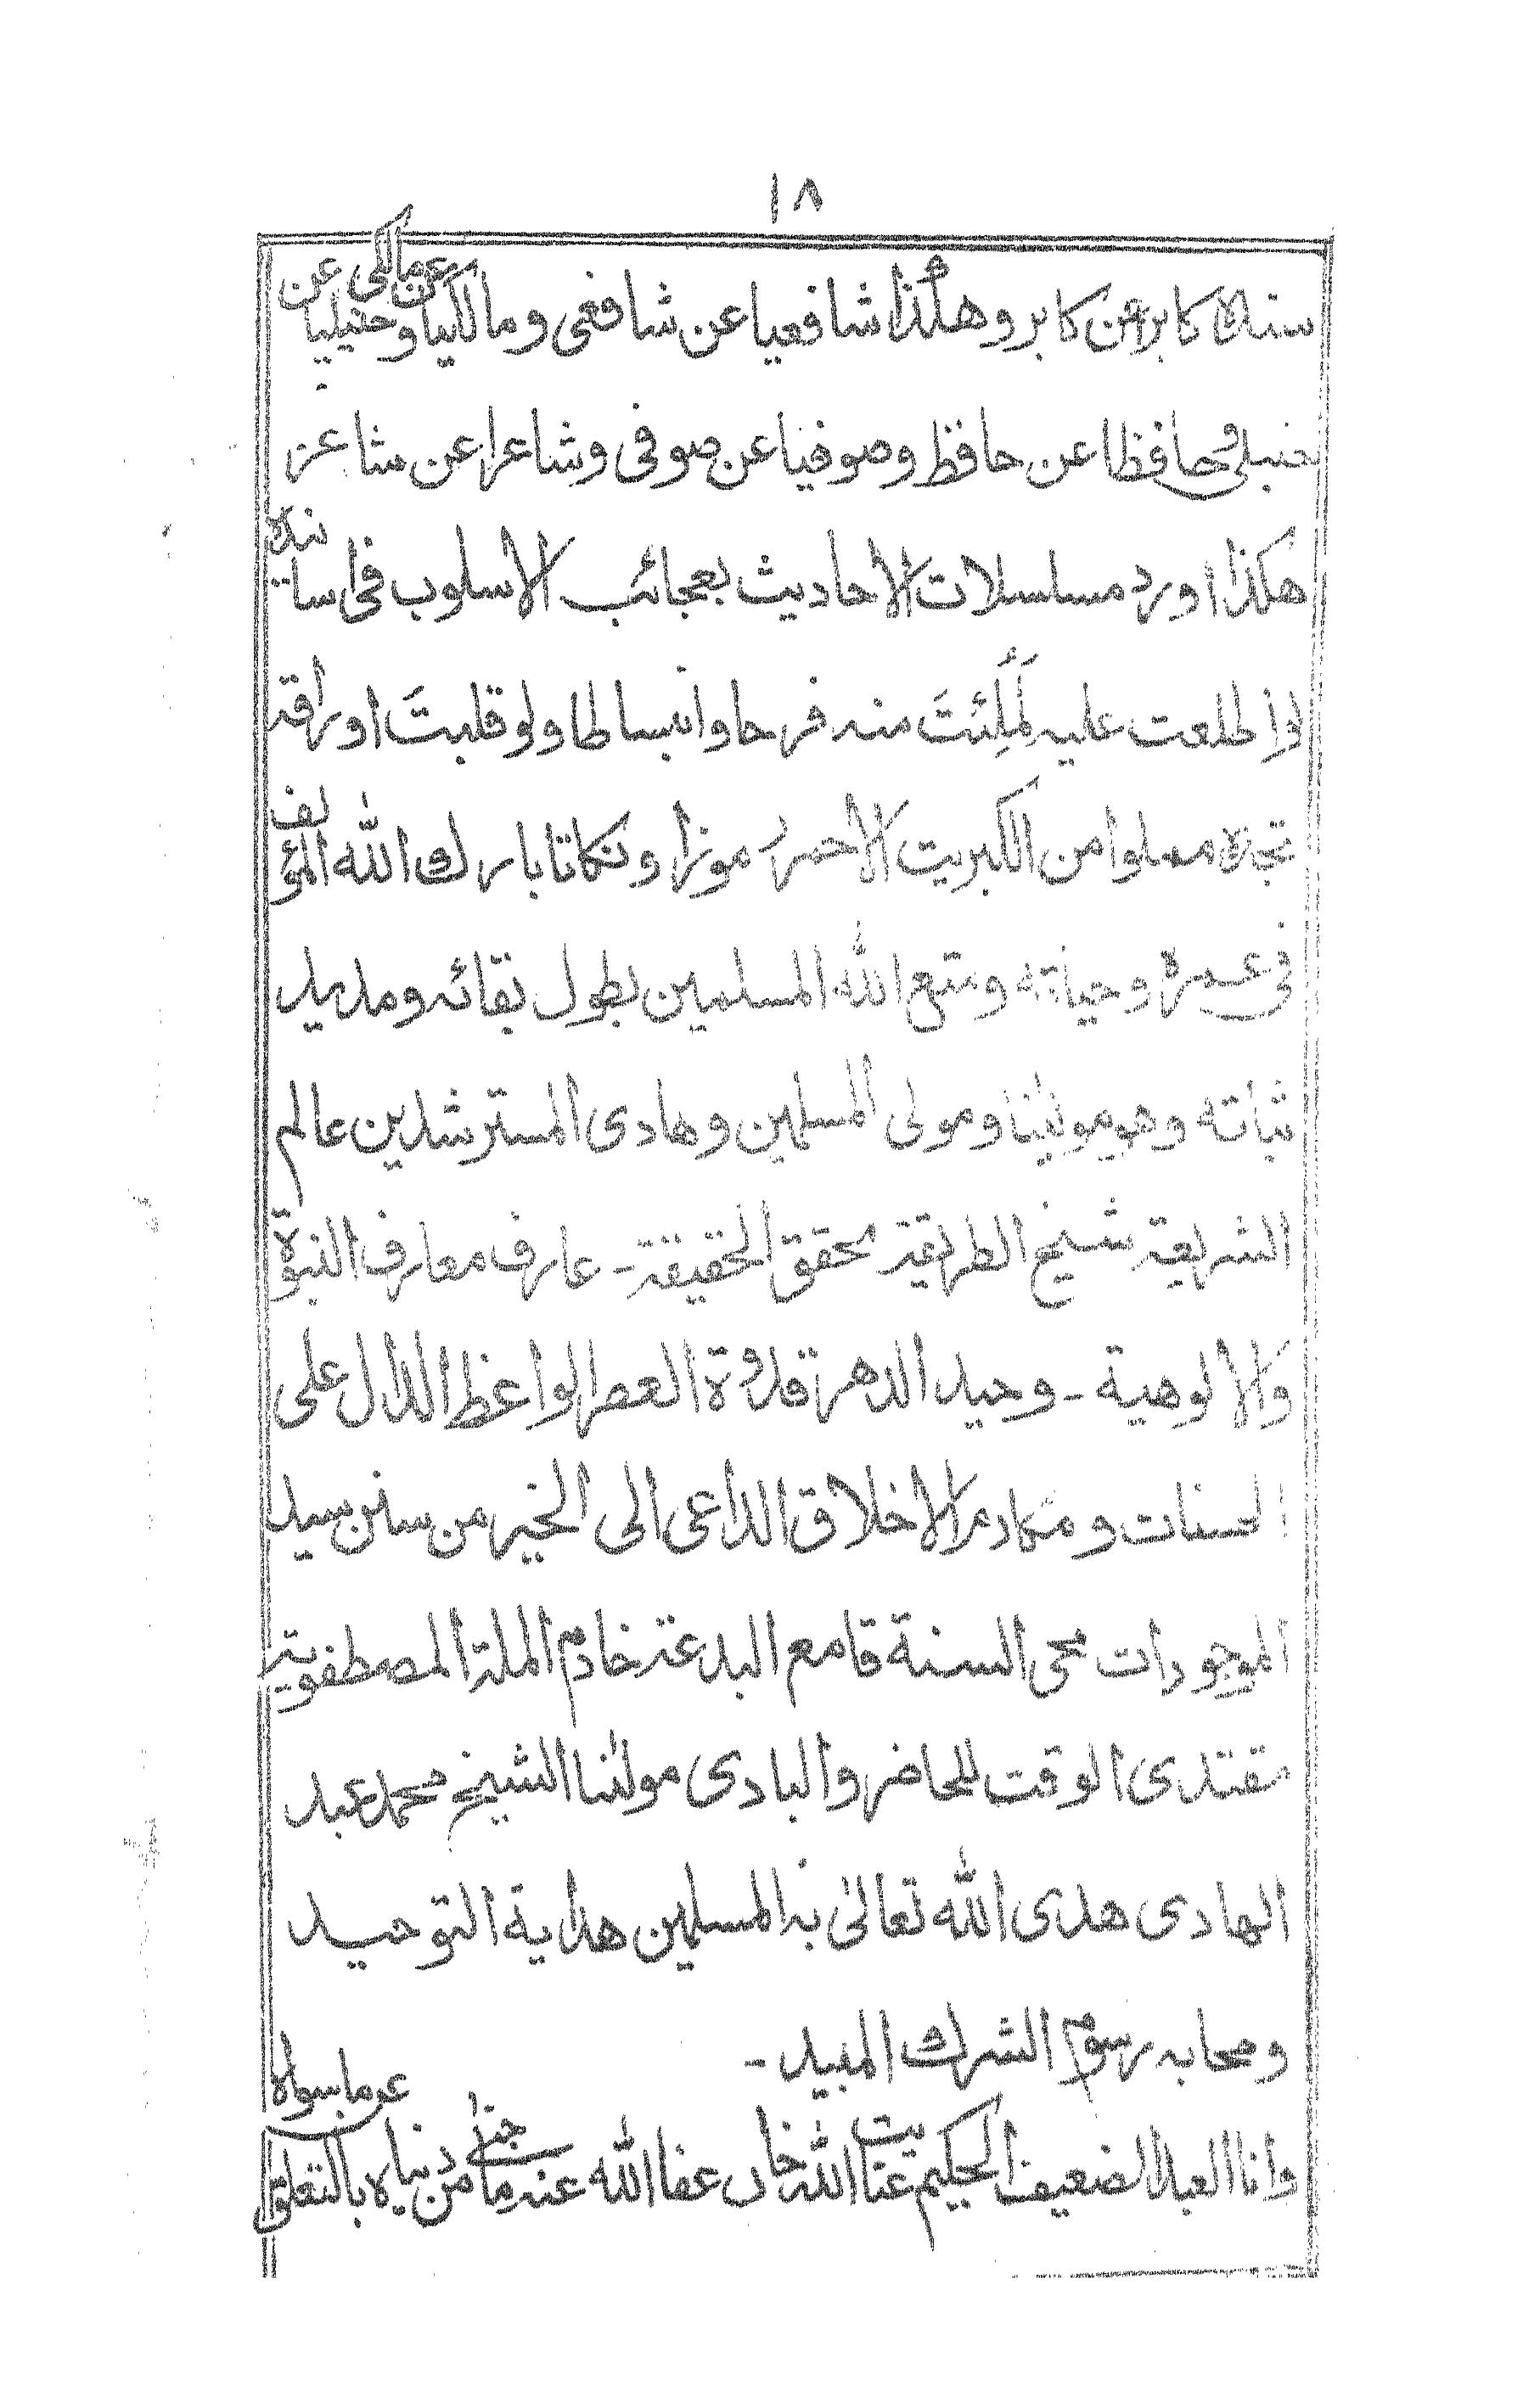 ١٨
سنده كابرا عن كابر وهكذا شافعيا عن شافعى ومالكيا عن مالكى وحنبليا عن
حنبلى وحافظا عن حافظ وصوفيا عن صوفى وشاعرا عن شاعر
هكذا اورد مسلسلات الاحاديث بعجائب الاسلوب فى اساتذة
لو اطلعت عليه لَمُلِئتَ منه فرحا وانبساطا ولو قلبتَ اوراقه
تجده مملوا من الكبريت الاحمر رموزا ونكاتا بارك الله المؤلف
فى عمره وحياته ومتع الله المسلمين بطول بقائه ومديد
ثباته وهو مولٰينا ومولى المسلمين وهادى المسترشدين عالم
الشريعة شيخ الطريقة محقق الحقيقة - عارف معارف النبوة
والالوهية - وحيد الدهر قدوة العصر الواعظ الدال على
الحسنات ومكارم الاخلاق الداعى الى الخير من سنن سيد
الموجودات محى السنة قامع البدعة خادم الملة المصطفوية
مقتدى الوقت للحاضر والبادى مولٰنا الشيخ محمد عبد
الهادى هدى الله تعالىٰ به المسلمين هداية التوحيد
ومحا به رسوم الشرك المبيد -
وانا العبد الضعيف الحكيم عنايت الله خاں عفا الله عنه ما جنىٰ من دنياه بالتعلق عن ماسواه